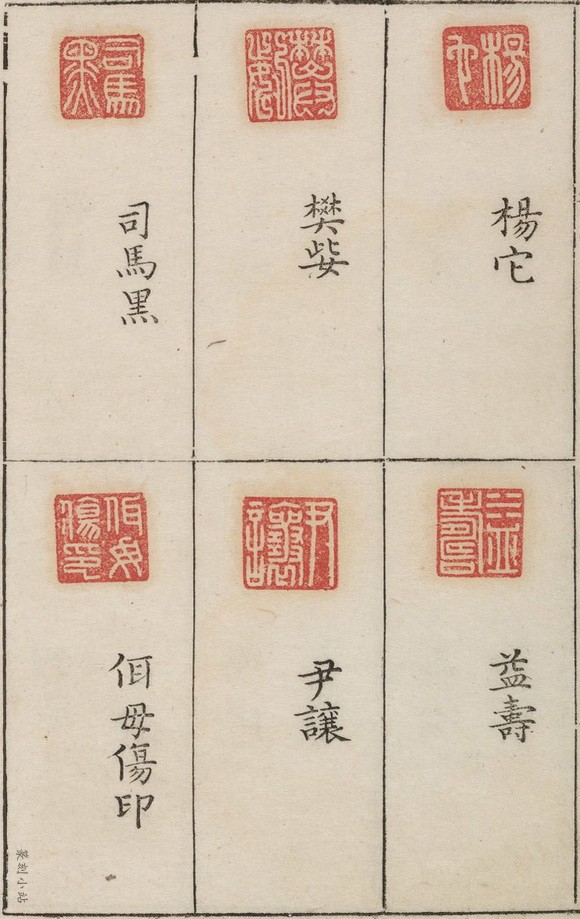 楊它
樊姕
司馬黑
益壽
尹讓
佰毋傷印
篆刻小站